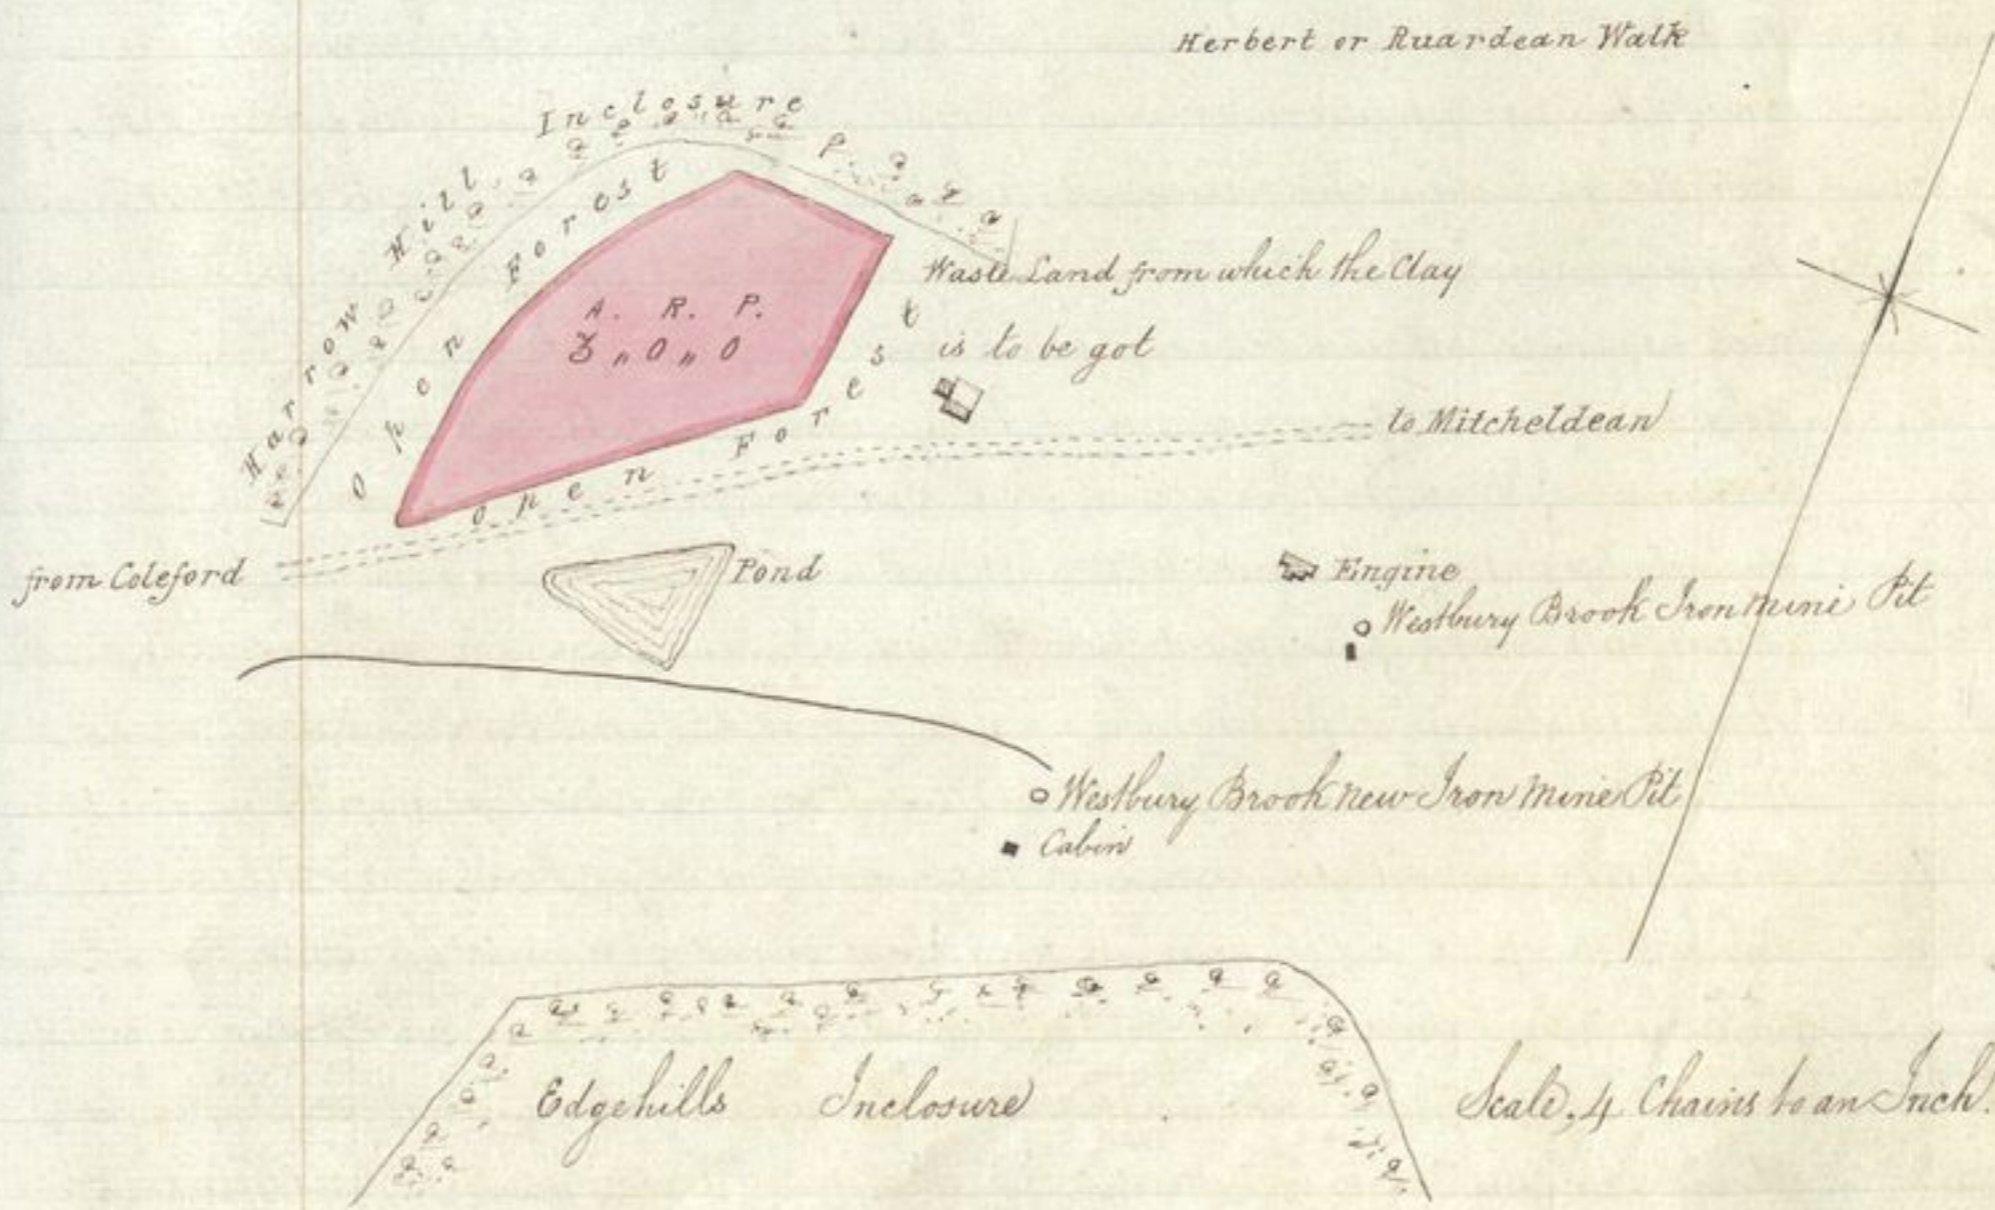 Herbert or Ruardean Walk
Harrow Hill Inclosure
Open Forest
A. R. P.
3 " 0 " 0
Open Forest
Waste Land from which the Clay
is to be got
to Mitcheldean
from Coleford
Pond
Engine
Westbury Brook Iron Mine Pit
Westbury Brook New Iron Mine Pit
Cabin
Edgehills Inclosure
Scale, 4 Chains to an Inch.